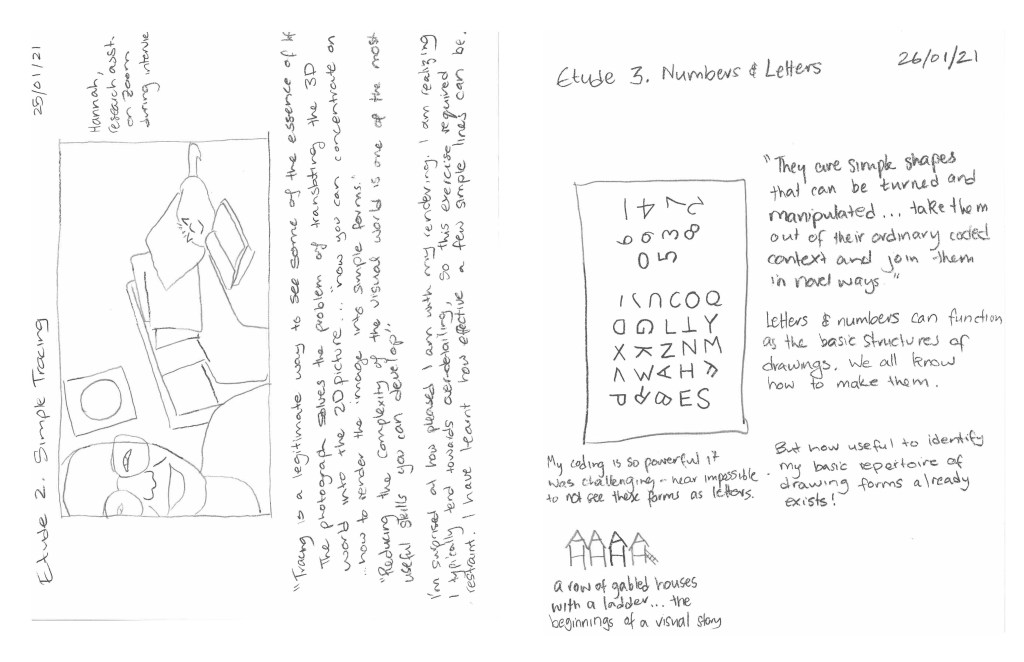 Etude 2. Simple Tracing
25/01/21
Hannah,
research asst.
on zoom
during intervie
"Tracing is a legitimate way to see some of the essence of
The photograph solves the problem of translating the 3D
world into the 2D picture... now you can concentrate on
...how to render the image into simple forms."
"Reducing the complexity of the visual world is one of the most
useful skills you can develop".
I'm surprised at how pleased I am with my rendering. I am realizing
I typically tend towards over-detailing, so this exercise required
restraint. I have learnt how effective a few simple lines can be.
Etude 3. Numbers & Letters
26/01/21
1 4 7 2
6 9 3 8
0 5
I J U C O Q
D G L T Y
X K Z N M
V W A H F
P R B E S
"They are simple shapes
that can be turned and
manipulated... take them
out of their ordinary coded
context and join them
in novel ways"
Letters & numbers can function
as the basic structures of
drawings. We all know
how to make them.
But how useful to identify
my basic repertoire of
drawing forms already
exists!
My coding is so powerful it
was challenging - near impossible
to not see these forms as letters.
a row of gabled houses
with a ladder... the
beginnings of a visual story